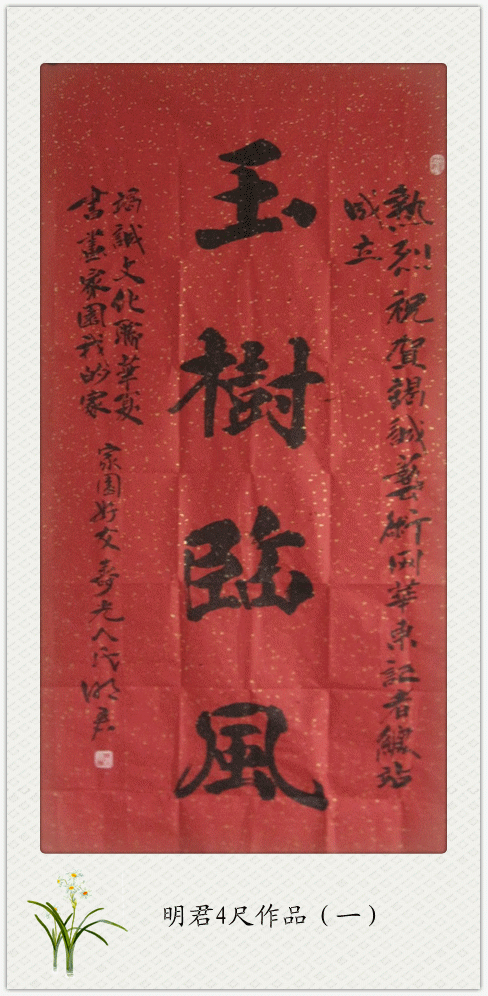 熱烈祝賀竭誠藝術网華東記者總站
成立
玉樹臨風
竭誠文化騰華夏
書畫家園我的家
家園好友壽光人氏明君
明君4尺作品（一）